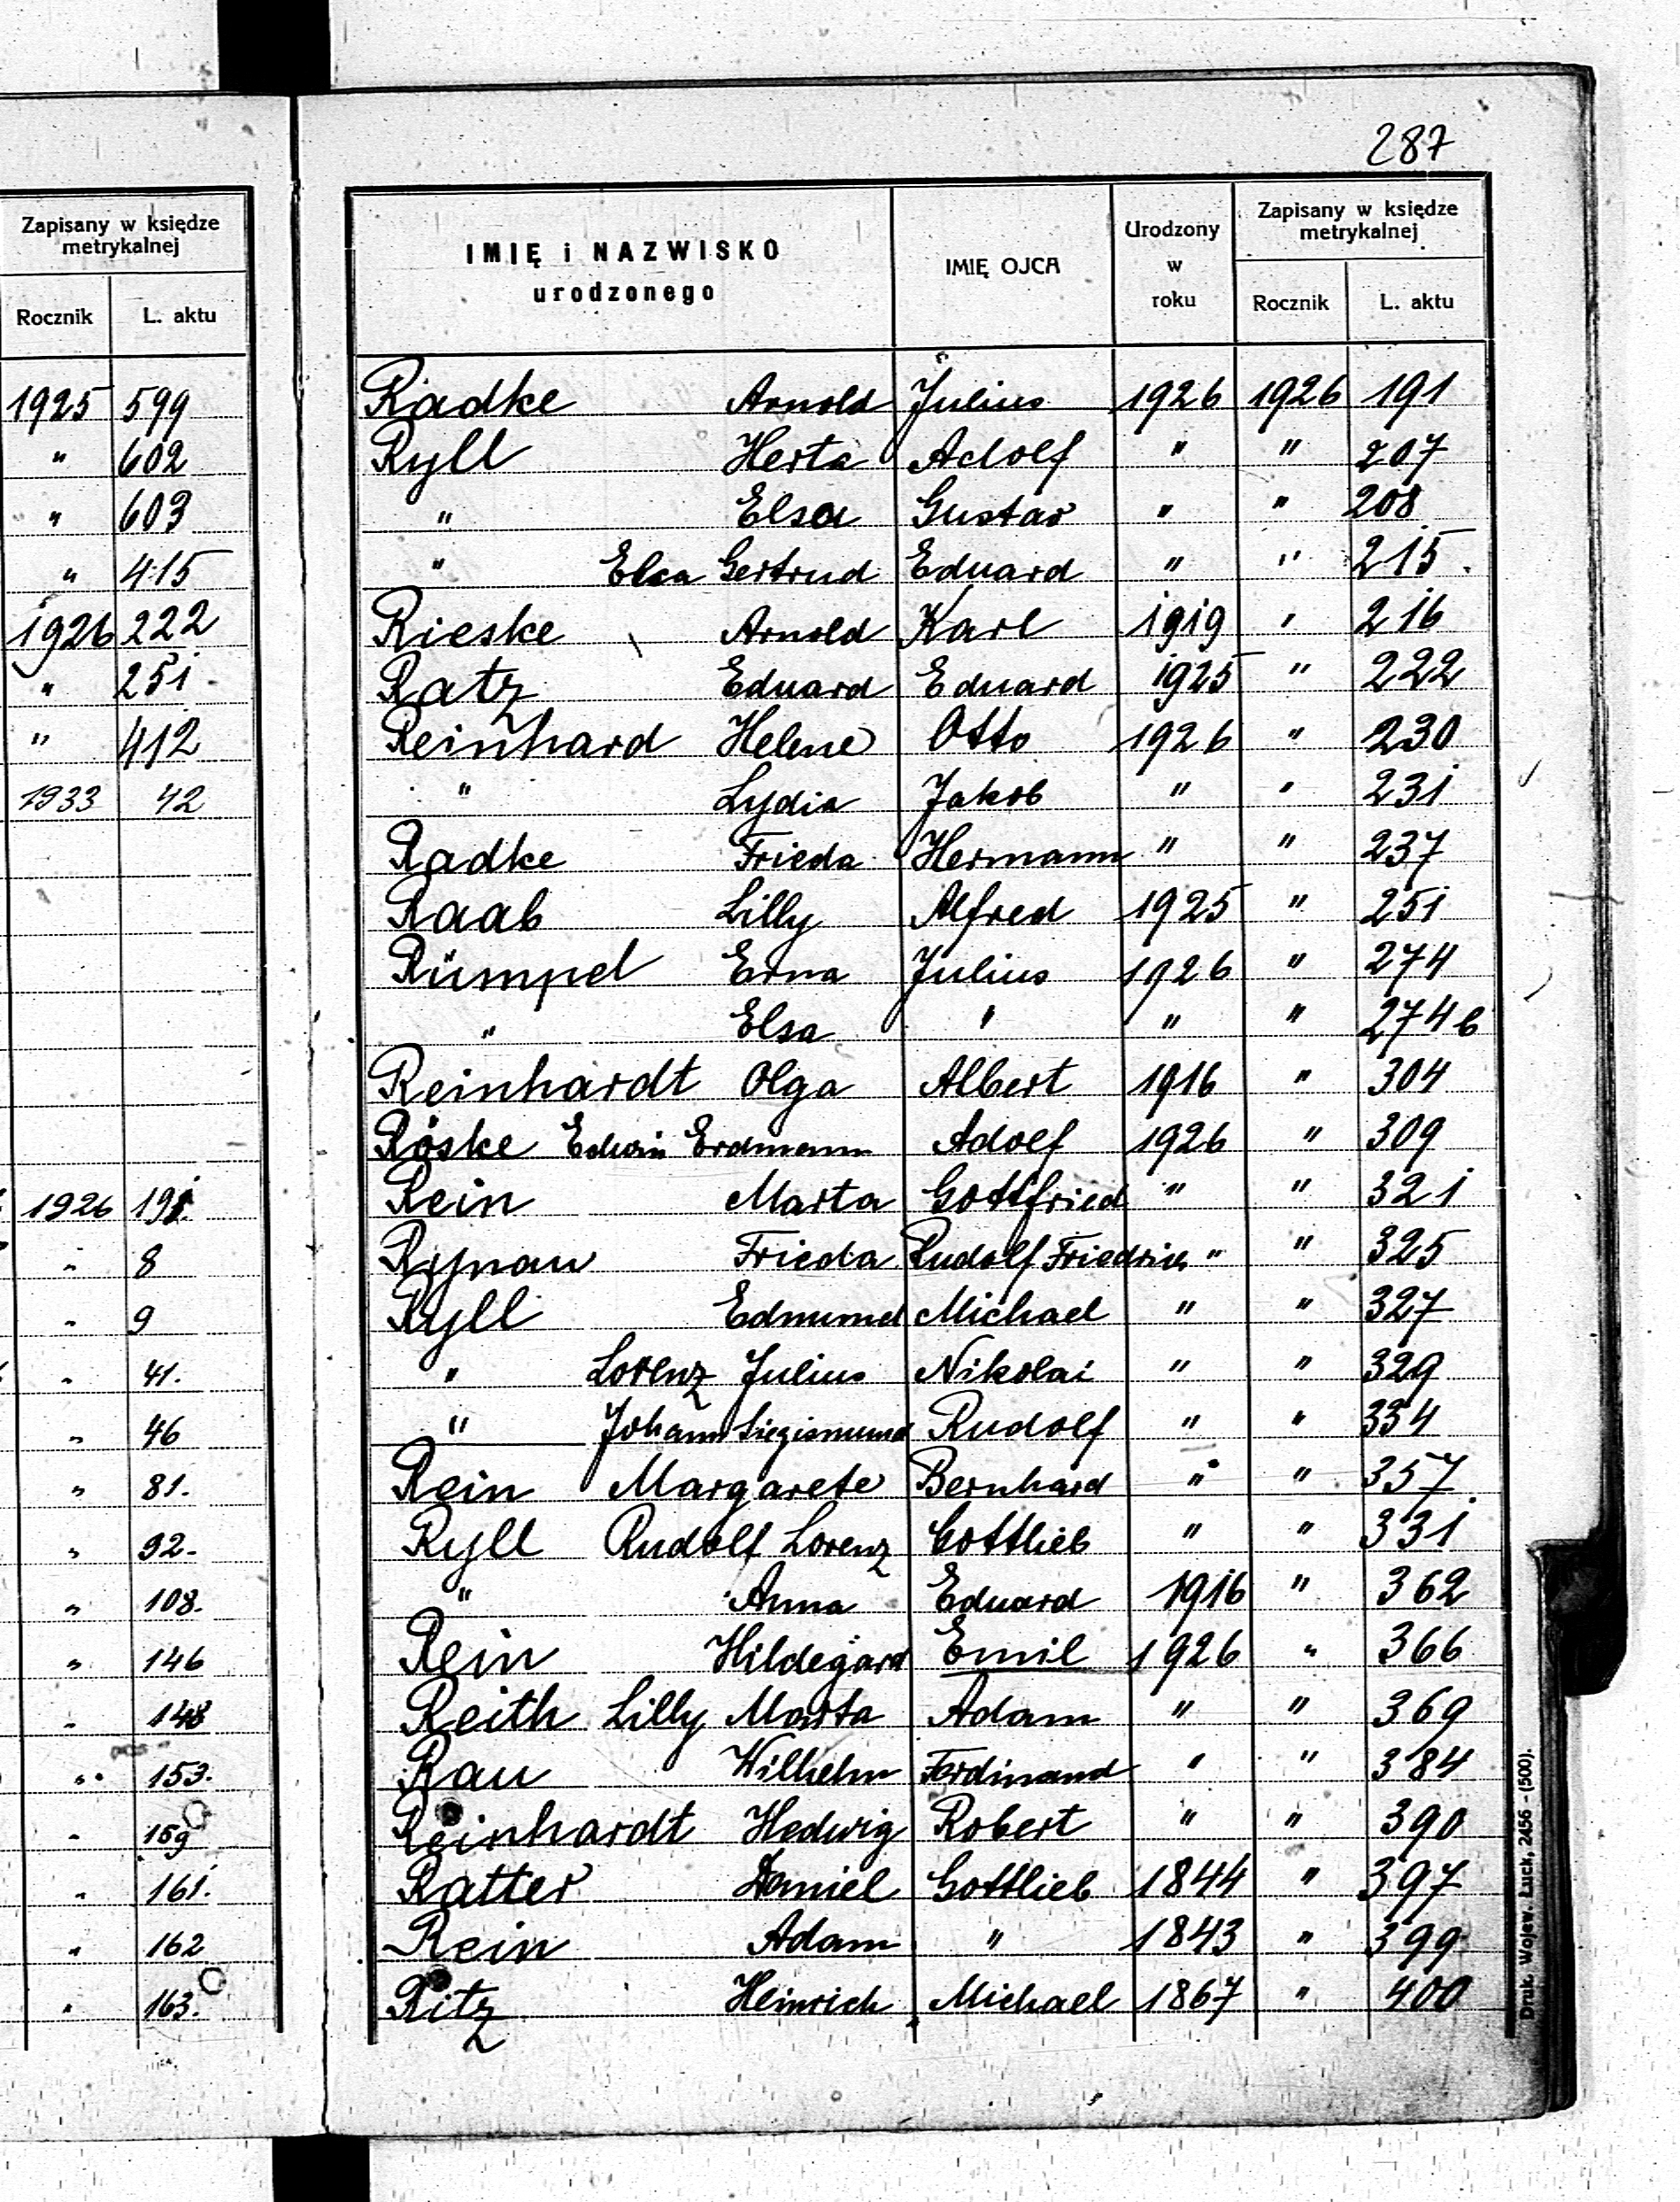 Zapisany w księdze
metrykalnej
Rocznik L. aktu
1925 599
" 602
" 603
" 415
1926 222
" 251
" 412
1933 42
1926 191.
" 8
" 9
" 41.
" 46
" 81.
" 92.
" 108.
" 146
" 148
" 153.
" 159
" 161.
" 162
" 163.
287
IMIĘ i NAZWISKO
urodzonego
IMIĘ OJCA
Urodzony
w
roku
Zapisany w księdze
metrykalnej
Rocznik L. aktu
Radke Arnold Julius 1926 1926 191
Ryll Herta Adolf " " 207
" Elsa Gustav " " 208
" Elsa Gertrud Eduard " " 215.
Rieske Arnold Karl 1919 " 216
Ratz Eduard Eduard 1925 " 222
Reinhard Helene Otto 1926 " 230
" Lydia Jakob " " 231
Radke Frieda Hermann " " 237
Raab Lilly Alfred 1925 " 251
Rümpel Erna Julius 1926 " 274
" Elsa " " " 274b
Reinhardt Olga Albert 1916 " 304
Röske Edwin Erdmann Adolf 1926 " 309
Rein Marta Gottfried " " 321
Rynau Frieda Rudolf Friedrich " " 325
Ryll Edmund Michael " " 327
" Lorenz Julius Nikolai " " 329
" Johann Siegismund Rudolf " " 334
Rein Margarete Bernhard " " 357
Ryll Rudolf Lorenz Gottlieb " " 331
" Anna Eduard 1916 " 362
Rein Hildegard Emil 1926 " 366
Reith Lilly Marta Adam " " 369
Rau Wilhelm Ferdinand " " 384
Reinhardt Hedwig Robert " " 390
Ratter Daniel Gottlieb 1844 " 397
Rein Adam " 1843 " 399
Ritz Heinrich Michael 1867 " 400
Druk. Wojew. Łuck, 2456 - (500).